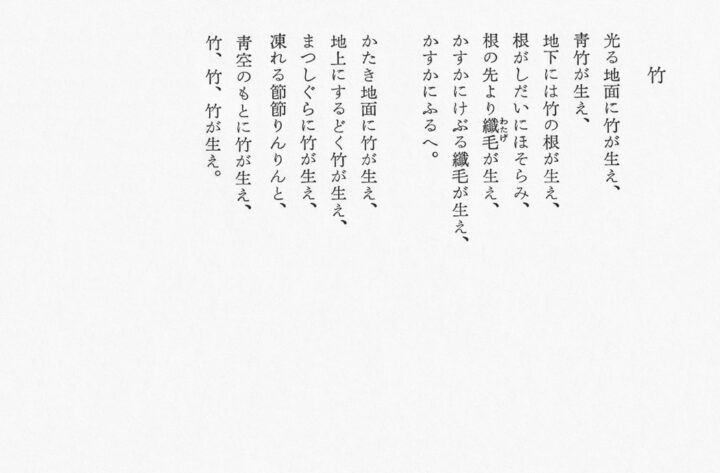 竹
光る地面に竹が生え、
青竹が生え、
地下には竹の根が生え、
根がしだいにほそらみ、
根の先より纖毛が生え、
わたげ
かすかにけぶる纖毛が生え、
かすかにふるへ。
かたき地面に竹が生え、
地上にするどく竹が生え、
まつしぐらに竹が生え、
凍れる節節りんりんと、
青空のもとに竹が生え、
竹、竹、竹が生え。